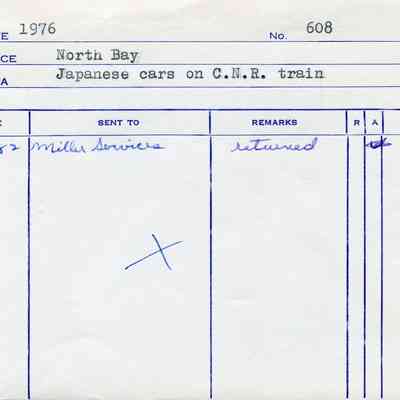 E 1976 No. 608
CE North Bay
A Japanese cars on C.N.R. train
E SENT TO REMARKS R A
82 Miller Services returned